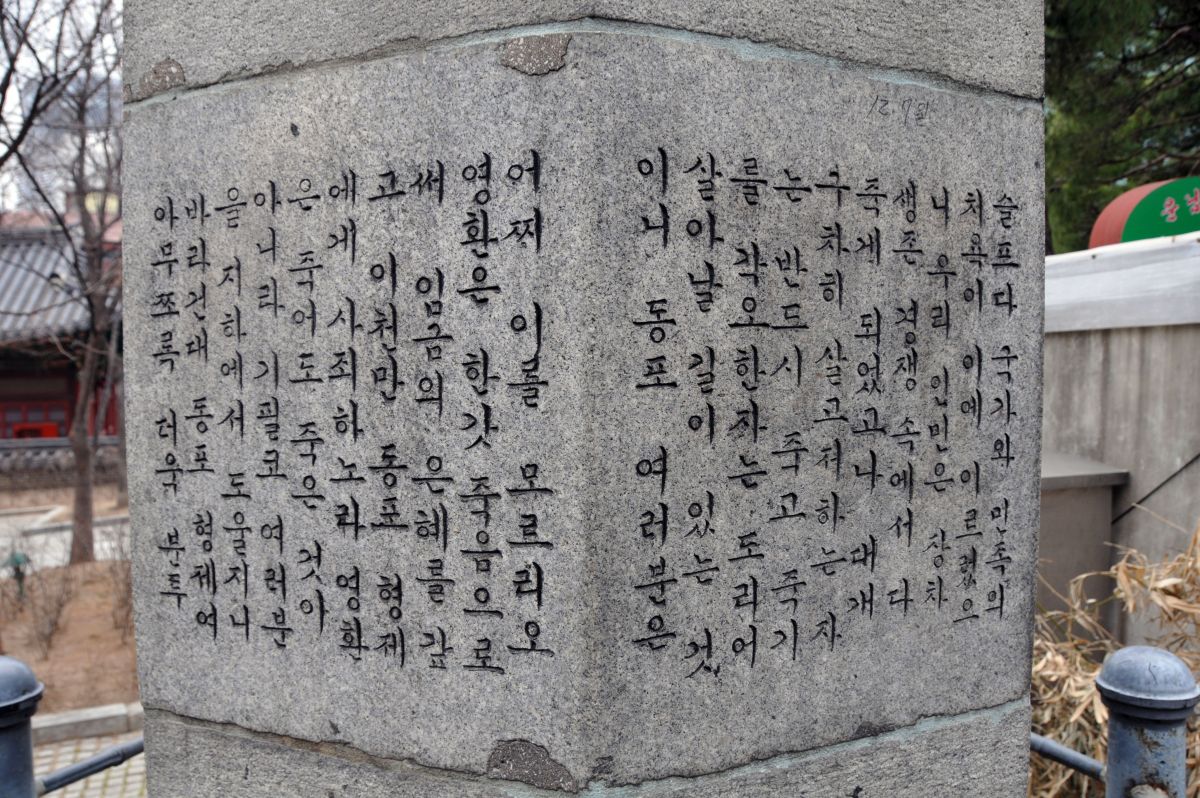 슬프다 국가와 민족의
치욕이 이에 이르렀으
니 우리 인민은 장차
생존 경쟁 속에서 다
죽게 되었고나 대개
구차히 살고저하는 자
는 반드시 죽고 죽기
를 각오한자는 도리어
살아날 길이 있는 것
이니 동포 여러분은
어찌 이를 모르리오
영환은 한갓 죽음으로
써 임금의 은혜를 갚
고 이천만 동포 형제
에게 사죄하노라 영환
은 죽어도 죽은 것아
아니라 기필코 여러분
을 지하에서 도울지니
바라건대 동포 형제여
아무쪼록 더욱 분투